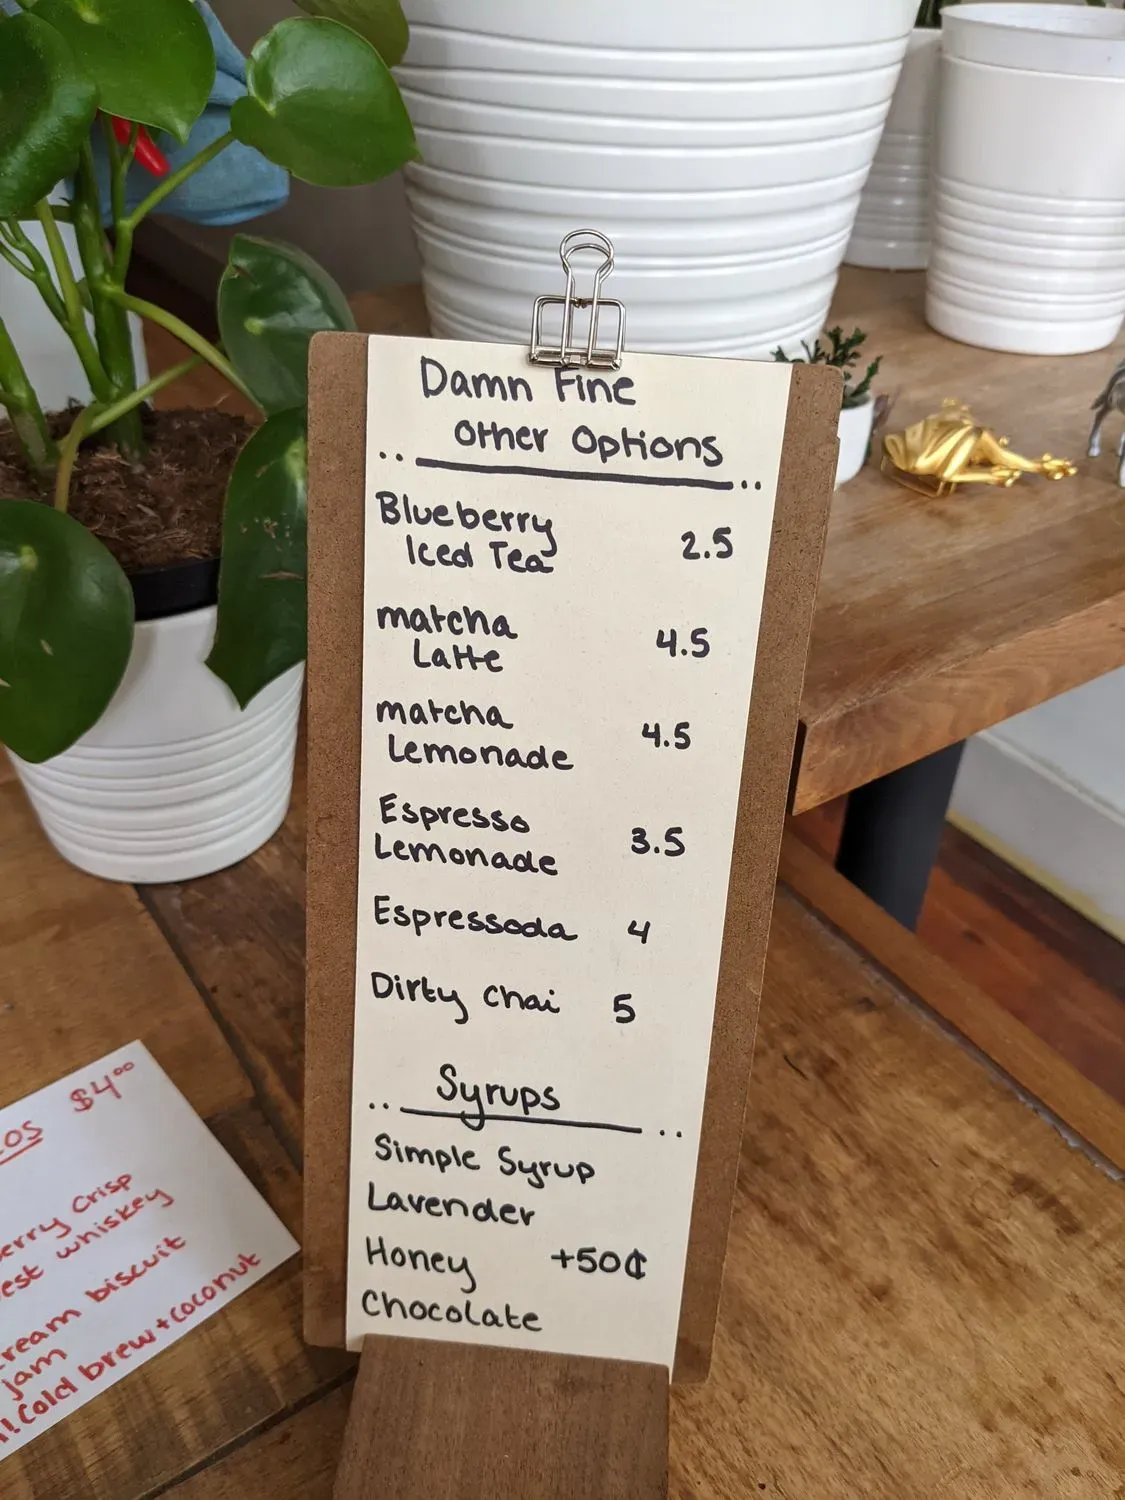 Damn Fine
Other Options
Blueberry
Iced Tea 2.5
matcha
Latte 4.5
matcha
Lemonade 4.5
Espresso
Lemonade 3.5
Espressoda 4
Dirty Chai 5
Syrups
Simple Syrup
Lavender
Honey +50¢
Chocolate
$4⁰⁰
crisp
whiskey
biscuit
jam
cold brew + coconut